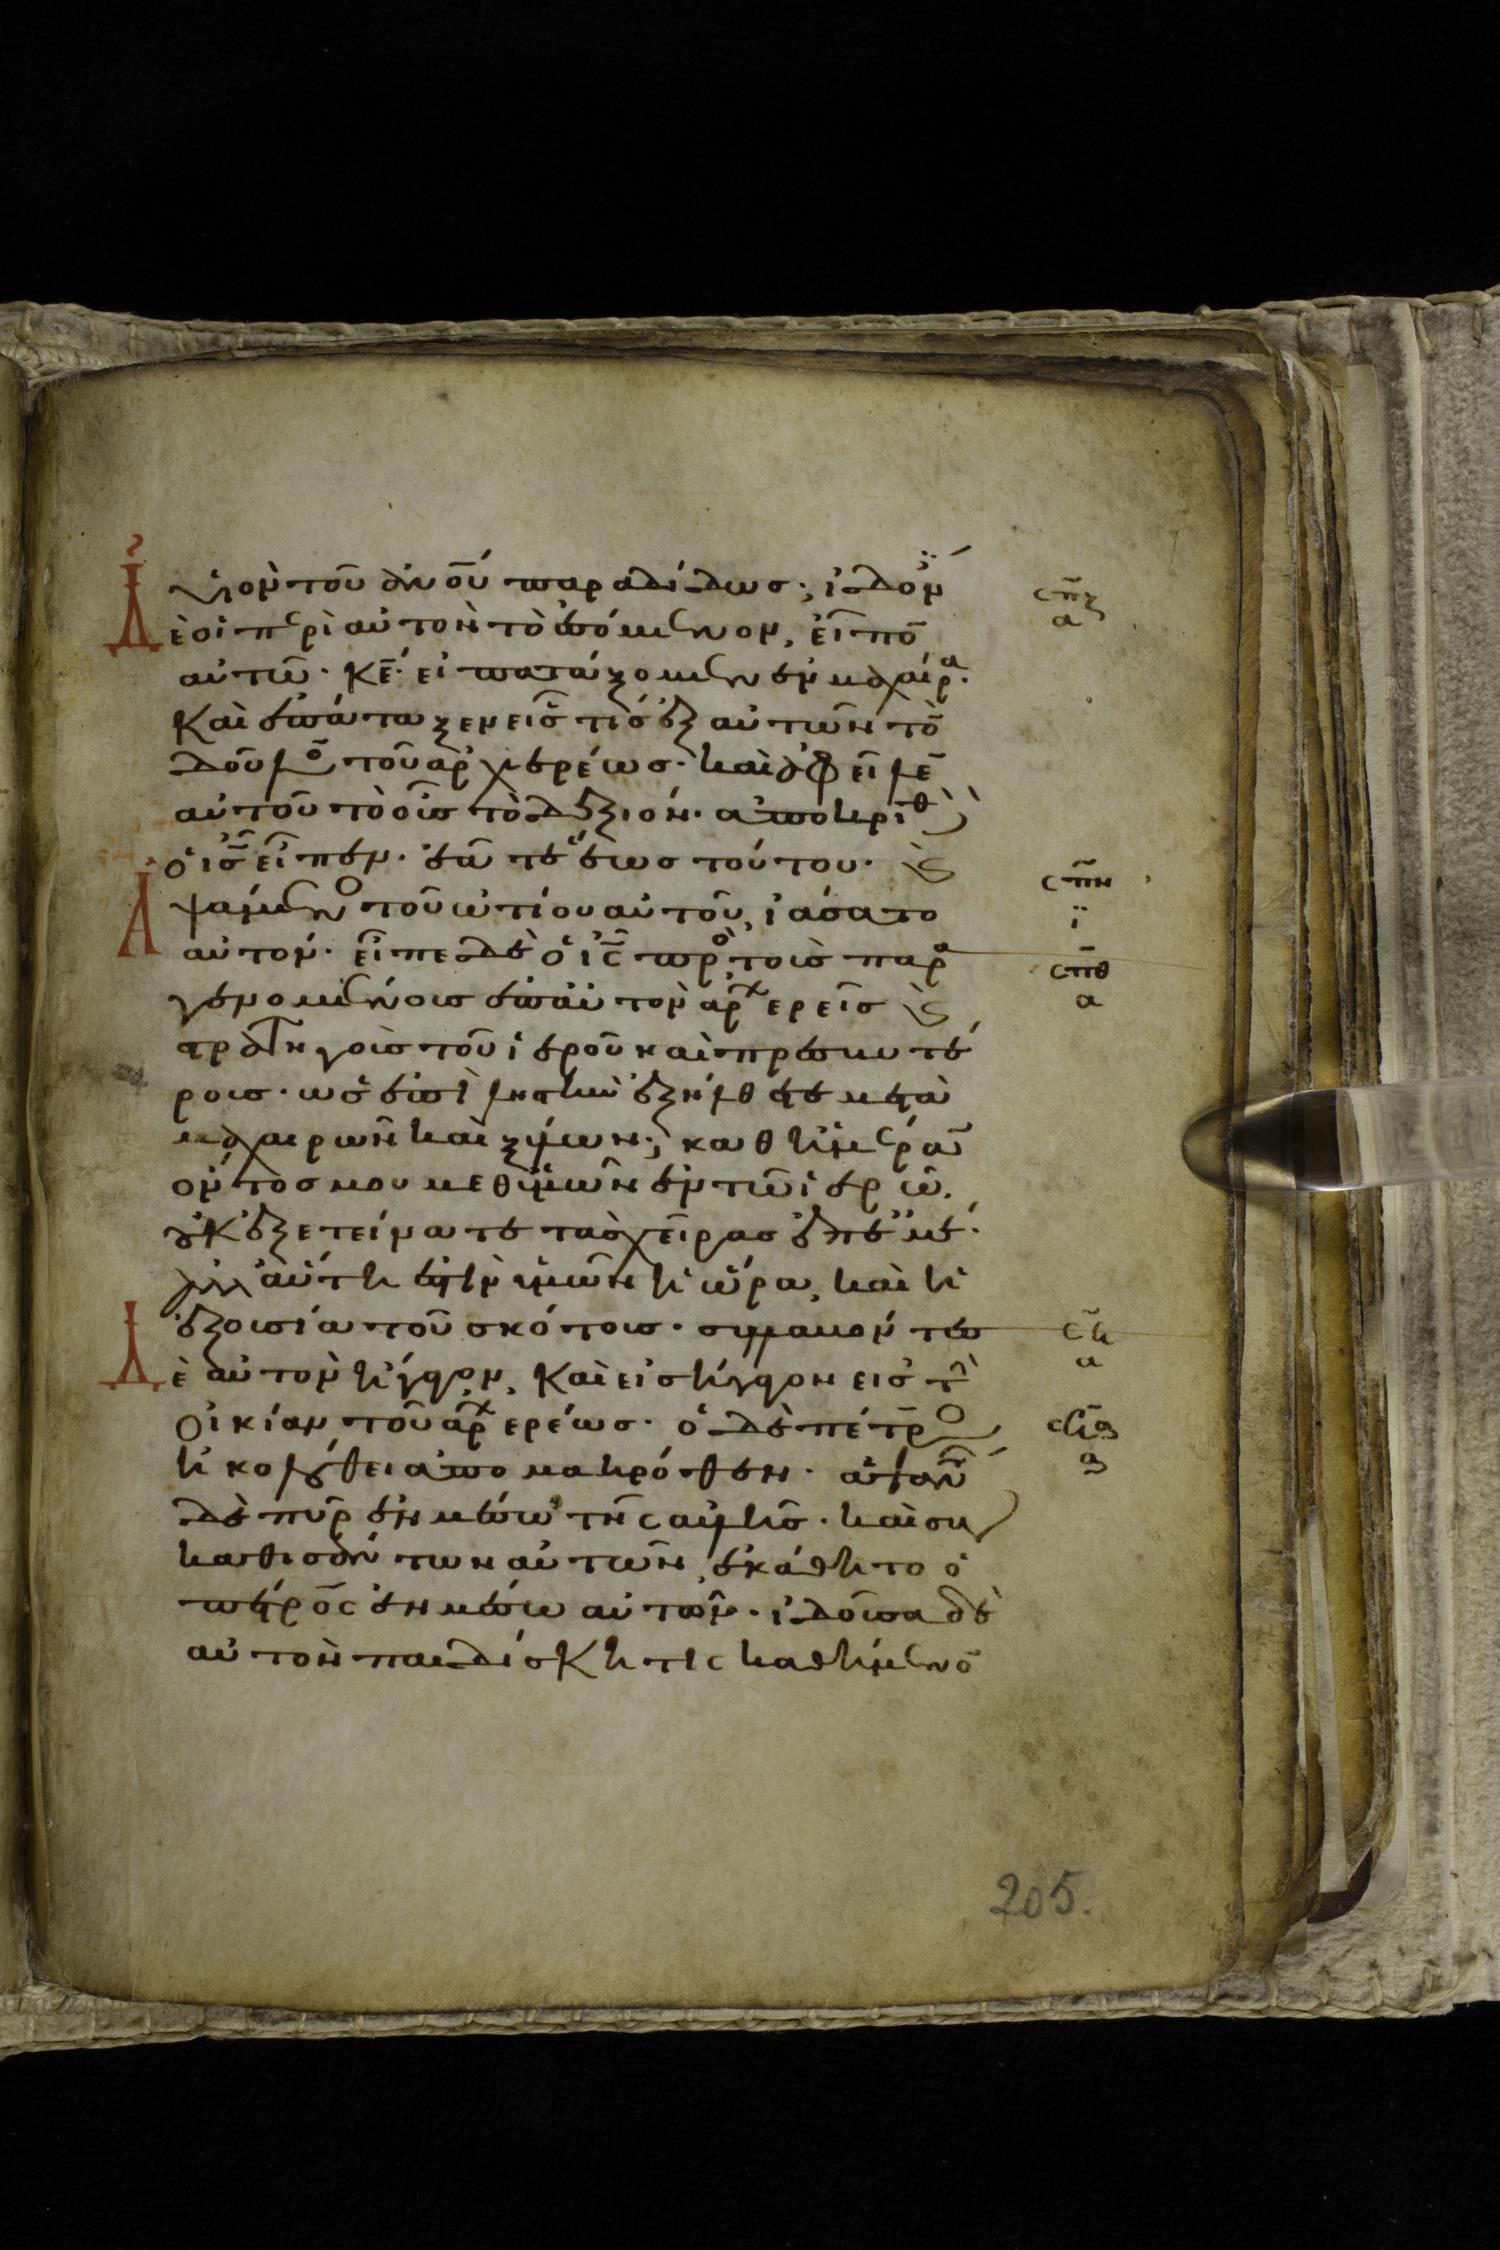 υἱὸν τοῦ ἀνου παραδίδως; ἰδόν
Δὲ οἱ περὶ αὐτὸν τὸ ἐσόμενον, εἶπο
αὐτῶ· κε̄ εἰ πατάξομεν ἐν μαχαίρα·
Καὶ ἐπάταξεν εἷς τίς ἐξ αὐτῶν τὸ
δοῦλο τοῦ ἀρχιερέως· καὶ ἀφεῖλε
αὐτοῦ τὸ οὖς τὸ δεξιόν· ἀποκριθ
ὁ ις̄ εἶπεν· ἐᾶτε ἕως τούτου· ϗ
Ἁψάμενο τοῦ ὠτίου αὐτοῦ, ἰάσατο
αὐτόν· εἶπε δὲ ὁ ις̄ προ τοὺς παρα
γενομένους ἐπ' αὐτὸν ἀρχερεῖς ϗ
στρατηγοὺς τοῦ ἱεροῦ καὶ πρεσβυτέ
ρους· ὡς ἐπὶ ληστὴν ἐξήλθετε μετὰ
μαχαιρῶν καὶ ξύλων; καθ ἡμέραν
ὄντος μου μεθ ὑμῶν ἐν τῶ ἱερῶ,
οὐκ ἐξετείνατε τὰς χεῖρας ἐπ' ἐμέ·
ἀλλ' αὕτη ἐστὶν ὑμῶν ἡ ὥρα, καὶ ἡ
ἐξουσία τοῦ σκότους· συλλαβόντες
Δὲ αὐτὸν ἤγαγον, καὶ εἰσήγαγον εἰς τὴ
οἰκίαν τοῦ ἀρχερέως· ὁ δὲ πέτρο
ἠκολούθει ἀπο μακρόθεν· ἁψάν
δὲ πῦρ ἐν μέσω τῆς αὐλῆς· καὶ συ
καθισάντων αὐτῶν, ἐκάθητο ὁ
πέτρος ἐν μέσω αὐτῶν· ἰδοῦσα δὲ
αὐτὸν παιδίσκη τις καθήμενο
σπζ
α
σπη
ϊ
σπθ
α
σϟ
α
σϟα
α
205.